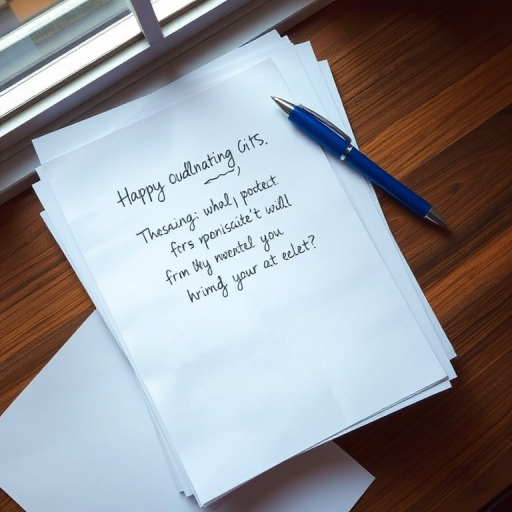 Happy oudlnating Git's.
Thesaing: whal, potect
fers rponiscite't will
frm thy novertel you
hring your at eelet?